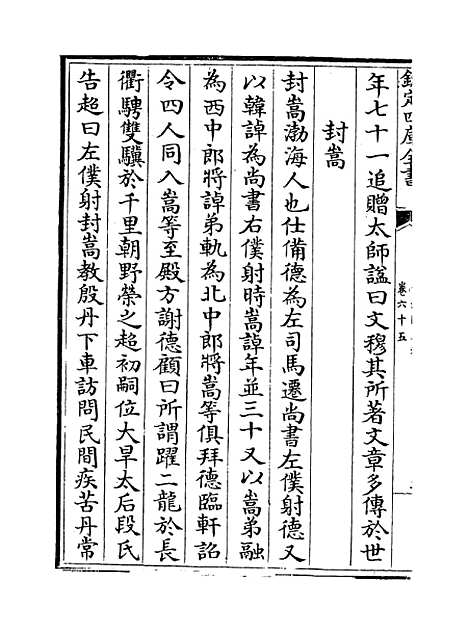 欽定四庫全書
卷六十五
年七十一追贈太師謚曰文穆其所著文章多傳於世
封嵩
封嵩渤海人也仕備德為左司馬遷尚書左僕射德又
以韓𧨳為尚書右僕射時嵩𧨳年並三十又以嵩弟融
為西中郎將𧨳弟軌為北中郎將嵩等俱拜德臨軒詔
令四人同入嵩等至殿方謝德顧曰所謂躍二龍於長
衢騁雙驥於千里朝野榮之超初嗣位大旱太后段氏
告超曰左僕射封嵩教殷丹下車訪問民間疾苦丹常